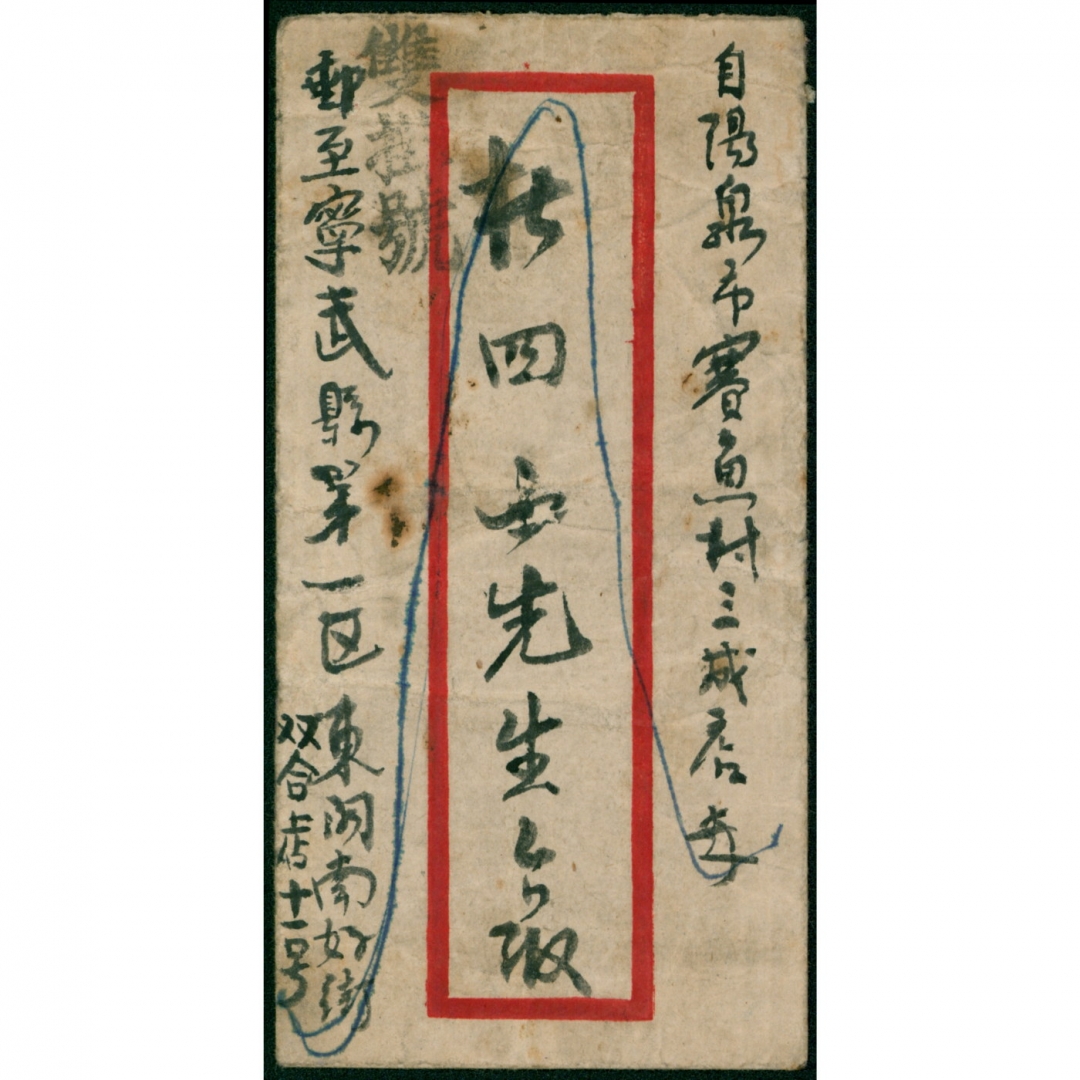 自陽泉市賽魚村三成店寄
杜四先生台
雙掛號
郵至寧武縣第一区東関南好街
双合店十一号